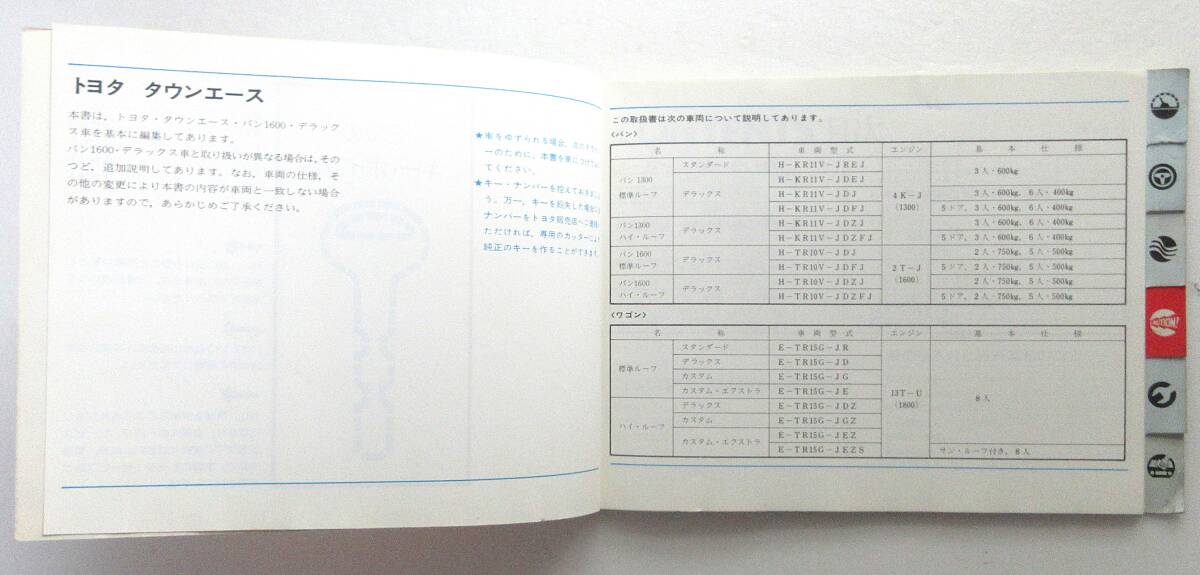 トヨタ タウンエース
本書は、トヨタ・タウンエース・バン1600・デラック
ス車を基本に編集してあります。
バン1600・デラックス車と取り扱いが異なる場合は、その
つど、追加説明してあります。なお、車両の仕様、そ
の他の変更により本書の内容が車両と一致しない場合
がありますので、あらかじめご了承ください。
★車をゆずられる場合、次のオーナ
ーのために、本書を車につけておい
てください。
★キー・ナンバーを控えておきましょ
う。万一、キーを紛失した場合
ナンバーをトヨタ販売店へご連絡い
ただければ、専用のカッターにより
純正のキーを作ることができます。
この取扱書は次の車両について説明してあります。
〈バン〉
名 称 車両型式 エンジン 基本仕様
バン1300 標準ルーフ スタンダード H-KR11V-JREJ 4K-J (1300) 3人・600kg
デラックス H-KR11V-JDEJ
H-KR11V-JDJ 3人・600kg, 6人・400kg
H-KR11V-JDFJ 5ドア, 3人・600kg, 6人・400kg
バン1300 ハイ・ルーフ デラックス H-KR11V-JDZJ 3人・600kg, 6人・400kg
H-KR11V-JDZFJ 5ドア, 3人・600kg, 6人・400kg
バン1600 標準ルーフ デラックス H-TR10V-JDJ 2T-J (1600) 2人・750kg, 5人・500kg
H-TR10V-JDFJ 5ドア, 2人・750kg, 5人・500kg
バン1600 ハイ・ルーフ デラックス H-TR10V-JDZJ 2人・750kg, 5人・500kg
H-TR10V-JDZFJ 5ドア, 2人・750kg, 5人・500kg
〈ワゴン〉
名 称 車両型式 エンジン 基本仕様
標準ルーフ スタンダード E-TR15G-JR 13T-U (1800) 8人
デラックス E-TR15G-JD
カスタム E-TR15G-JG
カスタム・エクストラ E-TR15G-JE
ハイ・ルーフ デラックス E-TR15G-JDZ
カスタム E-TR15G-JGZ
カスタム・エクストラ E-TR15G-JEZ
E-TR15G-JEZS サン・ルーフ付き, 8人
CAUTION!